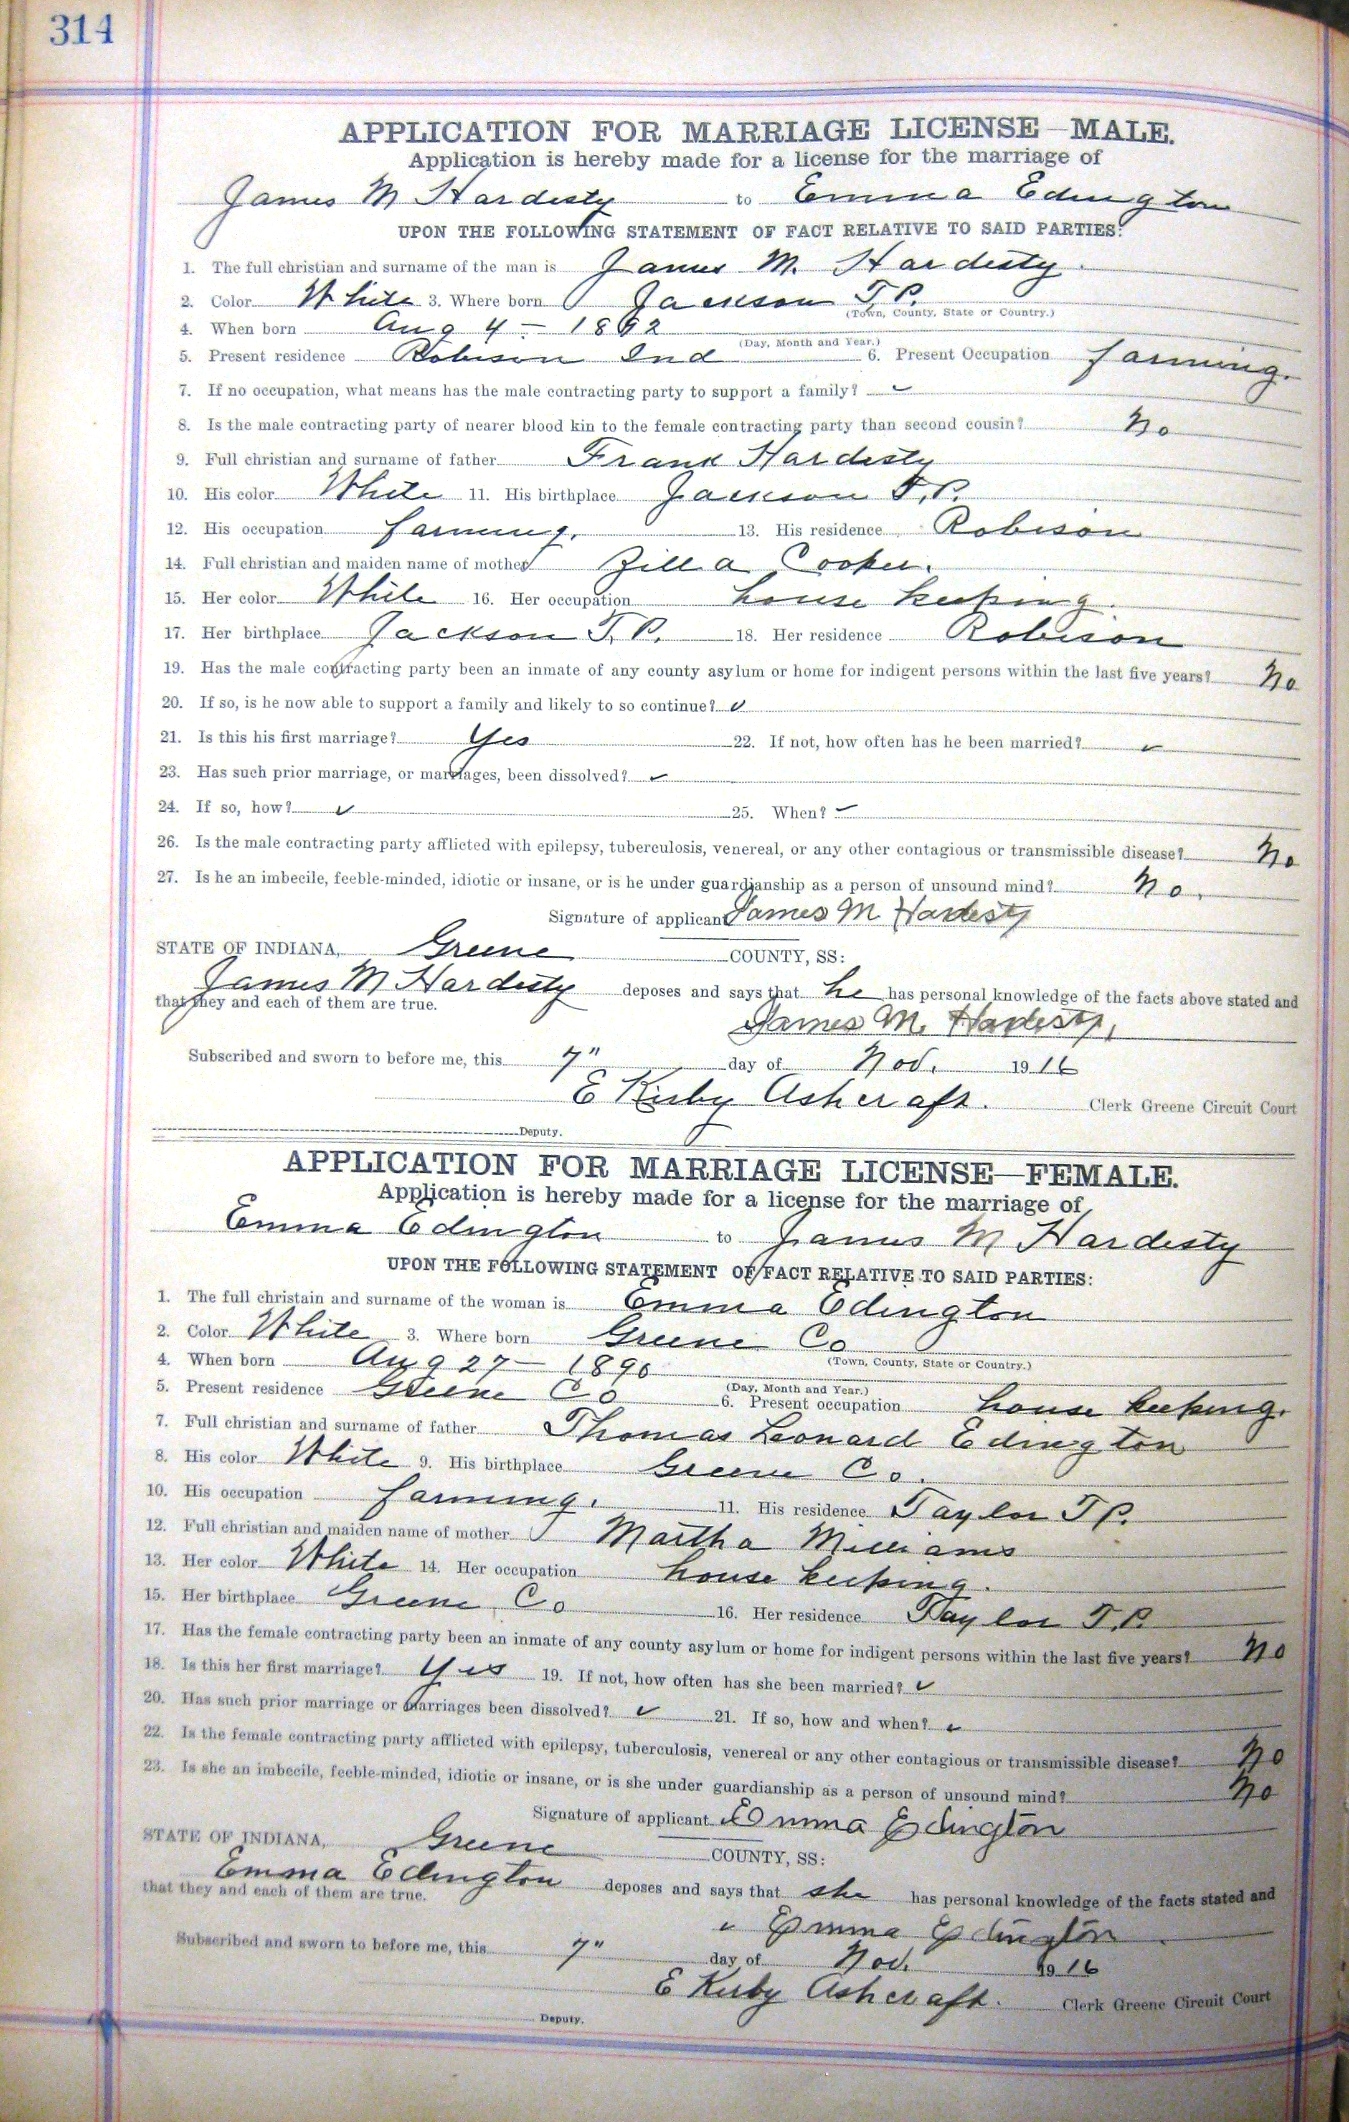 314
APPLICATION FOR MARRIAGE LICENSE—MALE.
Application is hereby made for a license for the marriage of
James M Hardesty to Emma Edington
UPON THE FOLLOWING STATEMENT OF FACT RELATIVE TO SAID PARTIES:
1. The full christian and surname of the man is James M. Hardesty
2. Color White 3. Where born Jackson T.P.
(Town, County, State or Country.)
4. When born Aug 4 — 1892
(Day, Month and Year.)
5. Present residence Robison Ind 6. Present Occupation farming.
7. If no occupation, what means has the male contracting party to support a family? ✓
8. Is the male contracting party of nearer blood kin to the female contracting party than second cousin? No
9. Full christian and surname of father Frank Hardesty
10. His color White 11. His birthplace Jackson T.P.
12. His occupation farming. 13. His residence Robison
14. Full christian and maiden name of mother Zilla Cooper.
15. Her color White 16. Her occupation house keeping.
17. Her birthplace Jackson T.P. 18. Her residence Robison
19. Has the male contracting party been an inmate of any county asylum or home for indigent persons within the last five years? No
20. If so, is he now able to support a family and likely to so continue? ✓
21. Is this his first marriage? Yes 22. If not, how often has he been married? ✓
23. Has such prior marriage, or marriages, been dissolved? ✓
24. If so, how? ✓ 25. When? ✓
26. Is the male contracting party afflicted with epilepsy, tuberculosis, venereal, or any other contagious or transmissible disease? No
27. Is he an imbecile, feeble-minded, idiotic or insane, or is he under guardianship as a person of unsound mind? No.
Signature of applicant James M Hardesty
STATE OF INDIANA, Greene COUNTY, SS:
James M Hardesty deposes and says that he has personal knowledge of the facts above stated and
that they and each of them are true.
James M. Hardesty,
Subscribed and sworn to before me, this 7" day of Nov. 1916
E Kirby Ashcraft. Clerk Greene Circuit Court
Deputy.
APPLICATION FOR MARRIAGE LICENSE—FEMALE.
Application is hereby made for a license for the marriage of
Emma Edington to James M Hardesty
UPON THE FOLLOWING STATEMENT OF FACT RELATIVE TO SAID PARTIES:
1. The full christain and surname of the woman is Emma Edington
2. Color White 3. Where born Greene Co
(Town, County, State or Country.)
4. When born Aug 27 — 1890
(Day, Month and Year.)
5. Present residence Greene Co 6. Present occupation house keeping.
7. Full christian and surname of father Thomas Leonard Edington
8. His color White 9. His birthplace Greene Co.
10. His occupation farming. 11. His residence Taylor T P.
12. Full christian and maiden name of mother Martha Milliams
13. Her color White 14. Her occupation house keeping.
15. Her birthplace Greene Co 16. Her residence Taylor T.P.
17. Has the female contracting party been an inmate of any county asylum or home for indigent persons within the last five years? No
18. Is this her first marriage? Yes 19. If not, how often has she been married? ✓
20. Has such prior marriage or marriages been dissolved? ✓ 21. If so, how and when? ✓
22. Is the female contracting party afflicted with epilepsy, tuberculosis, venereal or any other contagious or transmissible disease? No
23. Is she an imbecile, feeble-minded, idiotic or insane, or is she under guardianship as a person of unsound mind? No
Signature of applicant Emma Edington
STATE OF INDIANA, Greene COUNTY, SS:
Emma Edington deposes and says that she has personal knowledge of the facts stated and
that they and each of them are true.
Emma Edington
Subscribed and sworn to before me, this 7" day of Nov. 1916
E Kirby Ashcraft. Clerk Greene Circuit Court
Deputy.